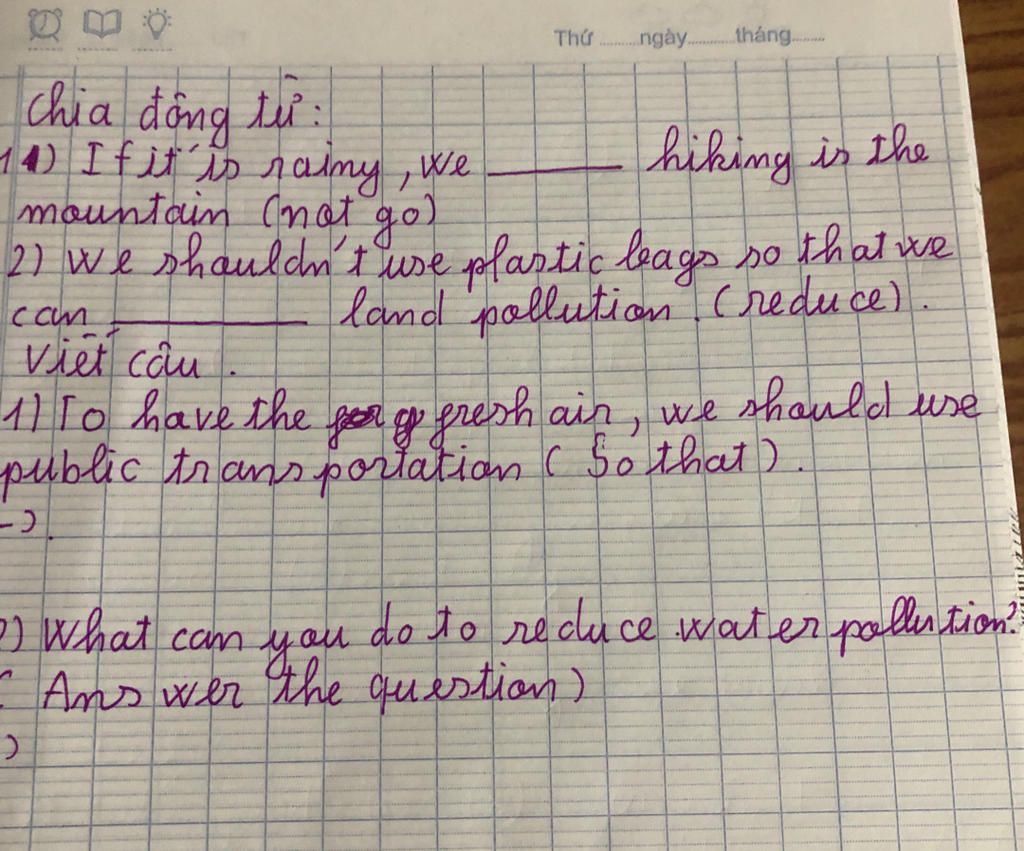 Thứ ........ngày.........tháng.......
Chia động từ :
1) If it is rainy, we ______ hiking in the
mountain (not go)
2) We shouldn't use plastic bags so that we
can ________ land pollution. (reduce).
Viết câu .
1) To have the fresh air, we should use
public transportation ( So that ).
->.
2) What can you do to reduce water pollution?
( Answer the question)
)